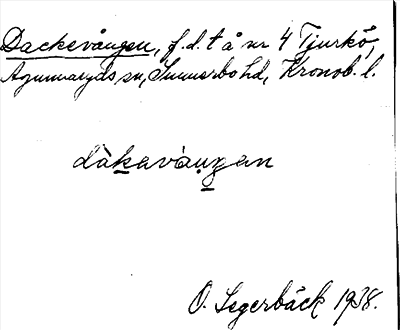 Dackevången, f.d. t å nr 4 Tjurkö,
Agunnaryds sn, Sunnerbo hd, Kronob. l.
dàkavàŋgan
O. Segerbäck 1938.